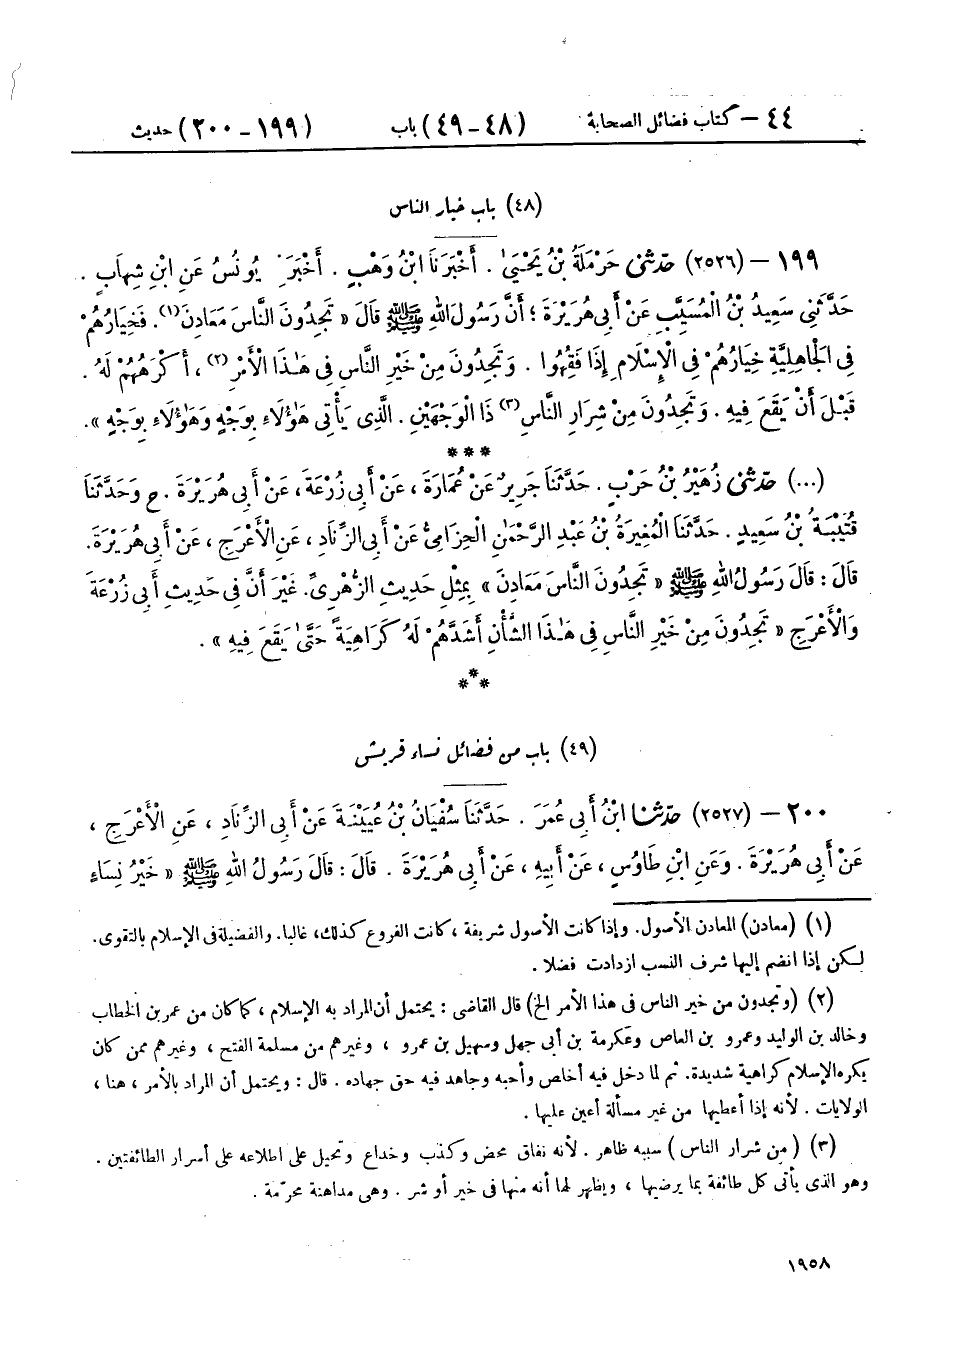 ٤٤ – كتاب فضائل الصحابة (٤٨ – ٤٩) باب (١٩٩ – ٢٠٠) حديث
(٤٨) باب خيار الناس
١٩٩ – (٢٥٢٦) حَدَّثَنِي حَرْمَلَةُ بْنُ يَحْيَىٰ . أَخْبَرَنَا ابْنُ وَهْبٍ . أَخْبَرَنِي يُونُسُ عَنِ ابْنِ شِهَابٍ .
حَدَّثَنِي سَعِيدُ بْنُ الْمُسَيَّبِ عَنْ أَبِي هُرَيْرَةَ ؛ أَنَّ رَسُولَ اللهِ ﷺ قَالَ « تَجِدُونَ النَّاسَ مَعَادِنَ (١) . فَخِيَارُهُمْ
فِي الْجَاهِلِيَّةِ خِيَارُهُمْ فِي الْإِسْلَامِ إِذَا فَقُهُوا . وَتَجِدُونَ مِنْ خَيْرِ النَّاسِ فِي هَـٰذَا الْأَمْرِ (٢) ، أَكْرَهُهُمْ لَهُ .
قَبْلَ أَنْ يَقَعَ فِيهِ . وَتَجِدُونَ مِنْ شِرَارِ النَّاسِ (٣) ذَا الْوَجْهَيْنِ . الَّذِي يَأْتِي هَـٰؤُلَاءِ بِوَجْهٍ وَهَـٰؤُلَاءِ بِوَجْهٍ » .
***
(...) حَدَّثَنِي زُهَيْرُ بْنُ حَرْبٍ . حَدَّثَنَا جَرِيرٌ عَنْ عُمَارَةَ ، عَنْ أَبِي زُرْعَةَ ، عَنْ أَبِي هُرَيْرَةَ . ح وَحَدَّثَنَا
قُتَيْبَةُ بْنُ سَعِيدٍ . حَدَّثَنَا الْمُغِيرَةُ بْنُ عَبْدِ الرَّحْمَٰنِ الْحِزَامِيُّ عَنْ أَبِي الزِّنَادِ ، عَنِ الْأَعْرَجِ ، عَنْ أَبِي هُرَيْرَةَ .
قَالَ : قَالَ رَسُولُ اللهِ ﷺ « تَجِدُونَ النَّاسَ مَعَادِنَ » بِمِثْلِ حَدِيثِ الزُّهْرِيِّ . غَيْرَ أَنَّ فِي حَدِيثِ أَبِي زُرْعَةَ
وَالْأَعْرَجِ « تَجِدُونَ مِنْ خَيْرِ النَّاسِ فِي هَـٰذَا الشَّأْنِ أَشَدَّهُمْ لَهُ كَرَاهِيَةً حَتَّىٰ يَقَعَ فِيهِ » .
***
(٤٩) باب من فضائل نساء قريش
٢٠٠ – (٢٥٢٧) حَدَّثَنَا ابْنُ أَبِي عُمَرَ . حَدَّثَنَا سُفْيَانُ بْنُ عُيَيْنَةَ عَنْ أَبِي الزِّنَادِ ، عَنِ الْأَعْرَجِ ،
عَنْ أَبِي هُرَيْرَةَ . وَعَنِ ابْنِ طَاوُسٍ ، عَنْ أَبِيهِ ، عَنْ أَبِي هُرَيْرَةَ . قَالَ : قَالَ رَسُولُ اللهِ ﷺ « خَيْرُ نِسَاءٍ
(١) (معادن) المعادن الأصول . وإذا كانت الأصول شريفة ، كانت الفروع كذلك ، غالبا . والفضيلة فى الإسلام بالتقوى .
لكن إذا انضم إليها شرف النسب ازدادت فضلا .
(٢) (وتجدون من خير الناس فى هذا الأمر الخ) قال القاضى : يحتمل أن المراد به الإسلام ، كما كان من عمر بن الخطاب
وخالد بن الوليد وعمرو بن العاص وعكرمة بن أبى جهل وسهيل بن عمرو ، وغيرهم من مسلمة الفتح ، وغيرهم ممن كان
يكره الإسلام كراهية شديدة . ثم لما دخل فيه أخلص وأحبه وجاهد فيه حق جهاده . قال : ويحتمل أن المراد بالأمر ، هنا ،
الولايات . لأنه إذا أعطيها من غير مسألة أعين عليها .
(٣) (من شرار الناس) سببه ظاهر . لأنه نفاق محض وكذب وخداع وتحيل على اطلاعه على أسرار الطائفتين .
وهو الذى يأتى كل طائفة بما يرضيها ، ويظهر لها أنه منها فى خير أو شر . وهى مداهنة محرّمة .
١٩٥٨